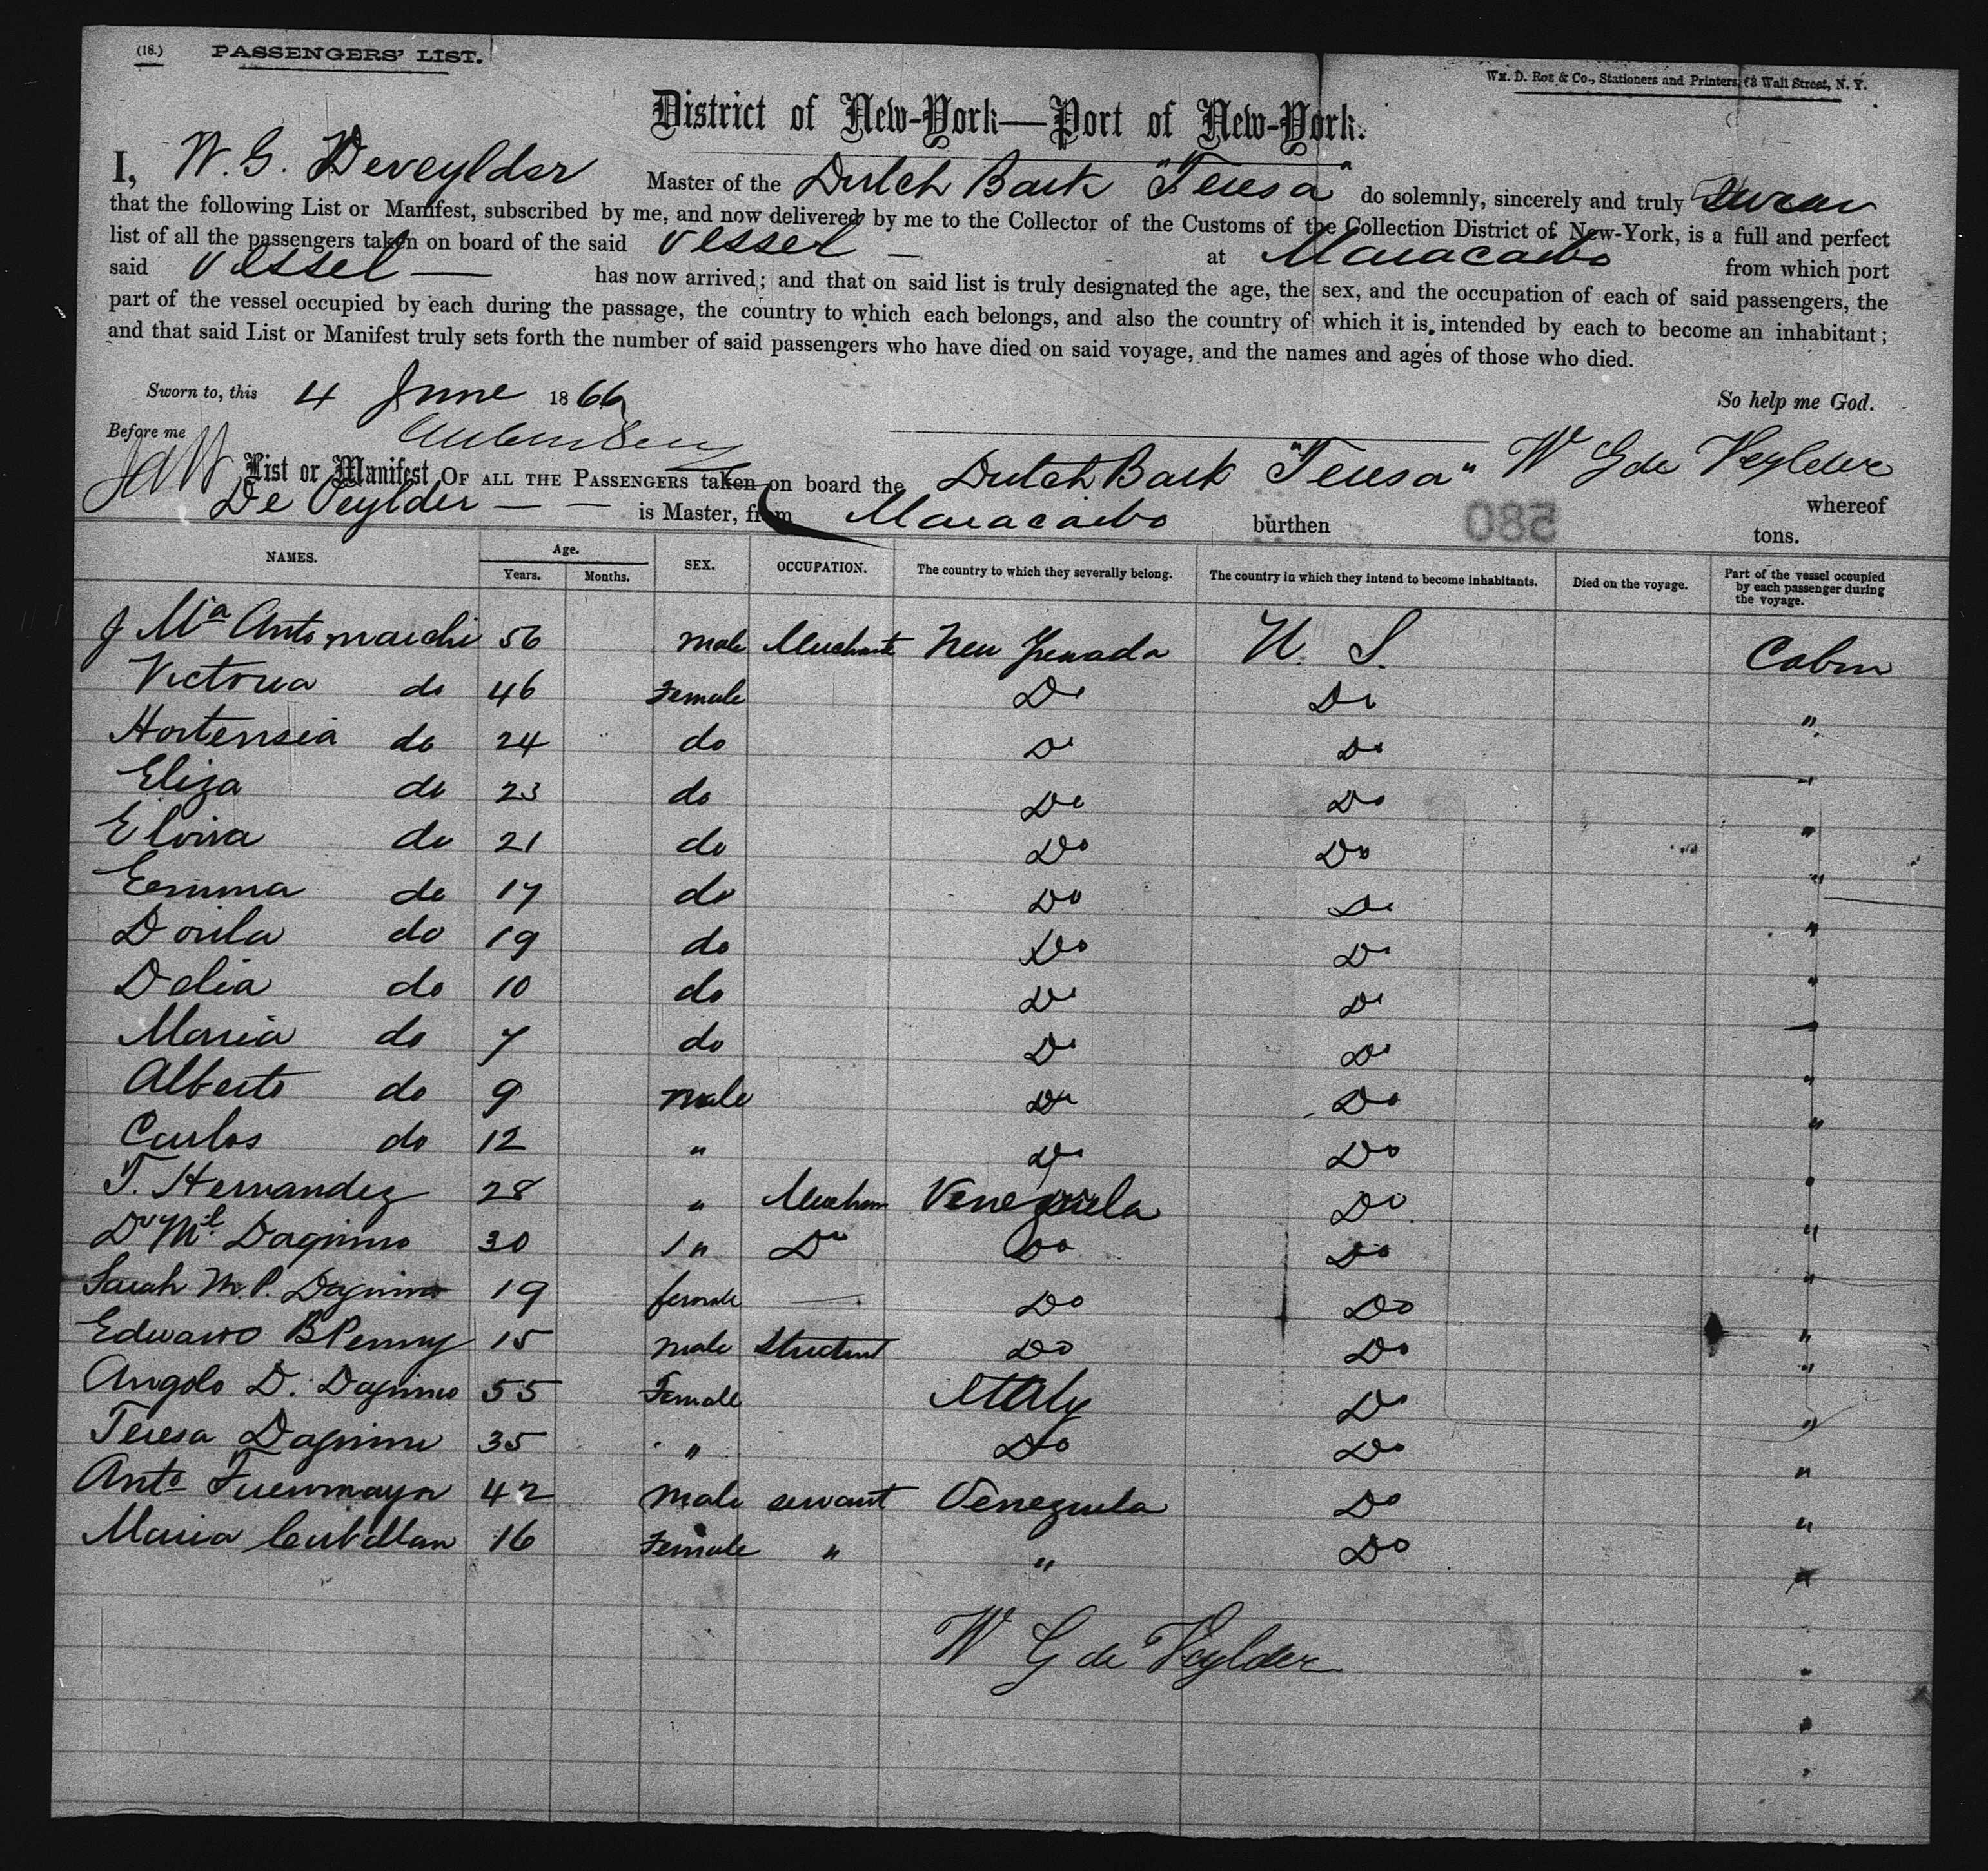 (18.) PASSENGERS' LIST.
Wm. D. Roe & Co., Stationers and Printers, Wall Street, N. Y.
District of New-York—Port of New-York.
I, W. G. Deveylder Master of the Dutch Bark "Teresa" do solemnly, sincerely and truly swear
that the following List or Manifest, subscribed by me, and now delivered by me to the Collector of the Customs of the Collection District of New-York, is a full and perfect
list of all the passengers taken on board of the said vessel — at Maracaibo from which port
said vessel — has now arrived; and that on said list is truly designated the age, the sex, and the occupation of each of said passengers, the
part of the vessel occupied by each during the passage, the country to which each belongs, and also the country of which it is intended by each to become an inhabitant;
and that said List or Manifest truly sets forth the number of said passengers who have died on said voyage, and the names and ages of those who died.
Sworn to, this 4 June 1866 So help me God.
Before me
W G de Veylder
List or Manifest OF ALL THE PASSENGERS taken on board the Dutch Bark "Teresa" whereof
De Veylder — — is Master, from Maracaibo burthen 580 tons.
NAMES. Age. Years. Months. SEX. OCCUPATION. The country to which they severally belong. The country in which they intend to become inhabitants. Died on the voyage. Part of the vessel occupied by each passenger during the voyage.
J Ma Antomarchi 56 male Merchant New Grenada U. S. Cabin
Victoria do 46 Female Do Do "
Hortensia do 24 do Do Do "
Eliza do 23 do Do Do "
Elvira do 21 do Do Do "
Emma do 17 do Do Do "
Dorila do 19 do Do Do "
Delia do 10 do Do Do "
Maria do 7 do Do Do "
Alberto do 9 male Do Do "
Carlos do 12 " Do Do "
T. Hernandez 28 " Merchant Venezuela Do "
Dr Ml Dagnino 30 " Dr Do Do "
Sarah M. P. Dagnino 19 female — Do Do "
Edward B Penny 15 male Student Do Do "
Angolo D. Dagnino 55 Female Italy Do "
Teresa Dagnino 35 " Do Do "
Anto Fuenmayor 42 male servant Venezuela Do "
Maria 16 Female " " Do "
W G de Veylder